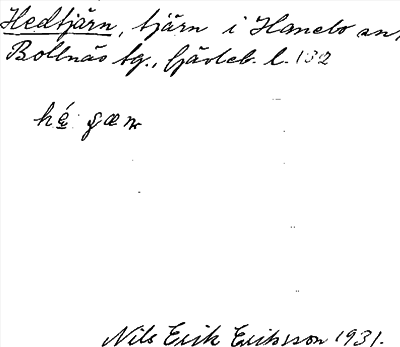 Hedtjärn, tjärn i Hanebo sn,
Bollnäs tg., fjärdeb. l. 132
Nils Erik Eriksson 1931.